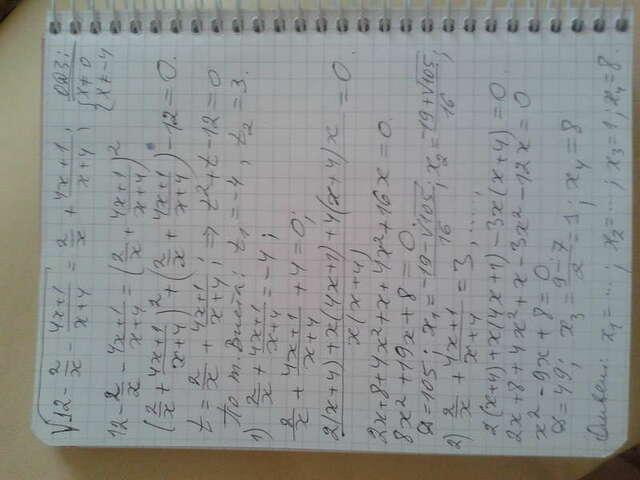 √(12 - 2/x - (4x+1)/(x+4)) = 2/x + (4x+1)/(x+4); ОДЗ: { x≠0 x≠-4
12 - 2/x - (4x+1)/(x+4) = (2/x + (4x+1)/(x+4))²
(2/x + (4x+1)/(x+4))² + (2/x + (4x+1)/(x+4)) - 12 = 0.
t = 2/x + (4x+1)/(x+4); ⇒ t² + t - 12 = 0
По т. Виета: t₁ = -4, t₂ = 3.
1) 2/x + (4x+1)/(x+4) = -4;
2/x + (4x+1)/(x+4) + 4 = 0;
(2(x+4) + x(4x+1) + 4(x+4)x)/(x(x+4)) = 0.
2x + 8 + 4x² + x + 4x² + 16x = 0.
8x² + 19x + 8 = 0;
D = 105; x₁ = (-19-√105)/16; x₂ = (-19+√105)/16;
2) 2/x + (4x+1)/(x+4) = 3, ....;
2(x+4) + x(4x+1) - 3x(x+4) = 0.
2x + 8 + 4x² + x - 3x² - 12x = 0
x² - 9x + 8 = 0
D = 49; x₃ = (9-7)/2 = 1; x₄ = 8
Ответ: x₁ = ...; x₂ = ...; x₃ = 1; x₄ = 8.